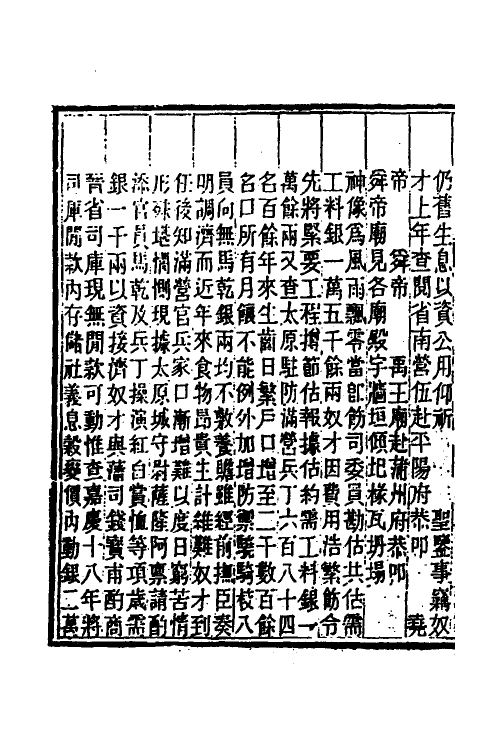 仍舊生息以資公用仰祈　聖鑒事竊奴
才上年查閱省南營伍赴平陽府恭叩　堯
帝　舜帝　禹王廟赴蒲州府恭叩
舜帝廟見各廟殿宇牆垣傾圯椽瓦坍塌
神像爲風雨飄零當卽飭司委員勘估共估需
工料銀一萬五千餘兩奴才因費用浩繁飭令
先將緊要工程撙節估報據估約需工料銀一
萬餘兩又查太原駐防滿營兵丁六百八十四
名百餘年來生齒日繁戶口增至二千數百餘
名口所有月餉不能例外加增防禦驍騎校八
員向無馬乾銀兩均不敷養贍雖經前撫臣奏
明調濟而近年來食物昂貴生計維難奴才到
任後知滿營官兵家口漸增難以度日窮苦情
形殊堪憫惻現據太原城守尉薩隆阿稟請酌
添官員馬乾及兵丁操演紅白賞恤等項歲需
銀一千兩以資接濟奴才與藩司錢寶甫酌商
晉省司庫現無閒款可動惟查嘉慶十八年將
司庫閒款內存儲社義息穀變價內動銀二萬